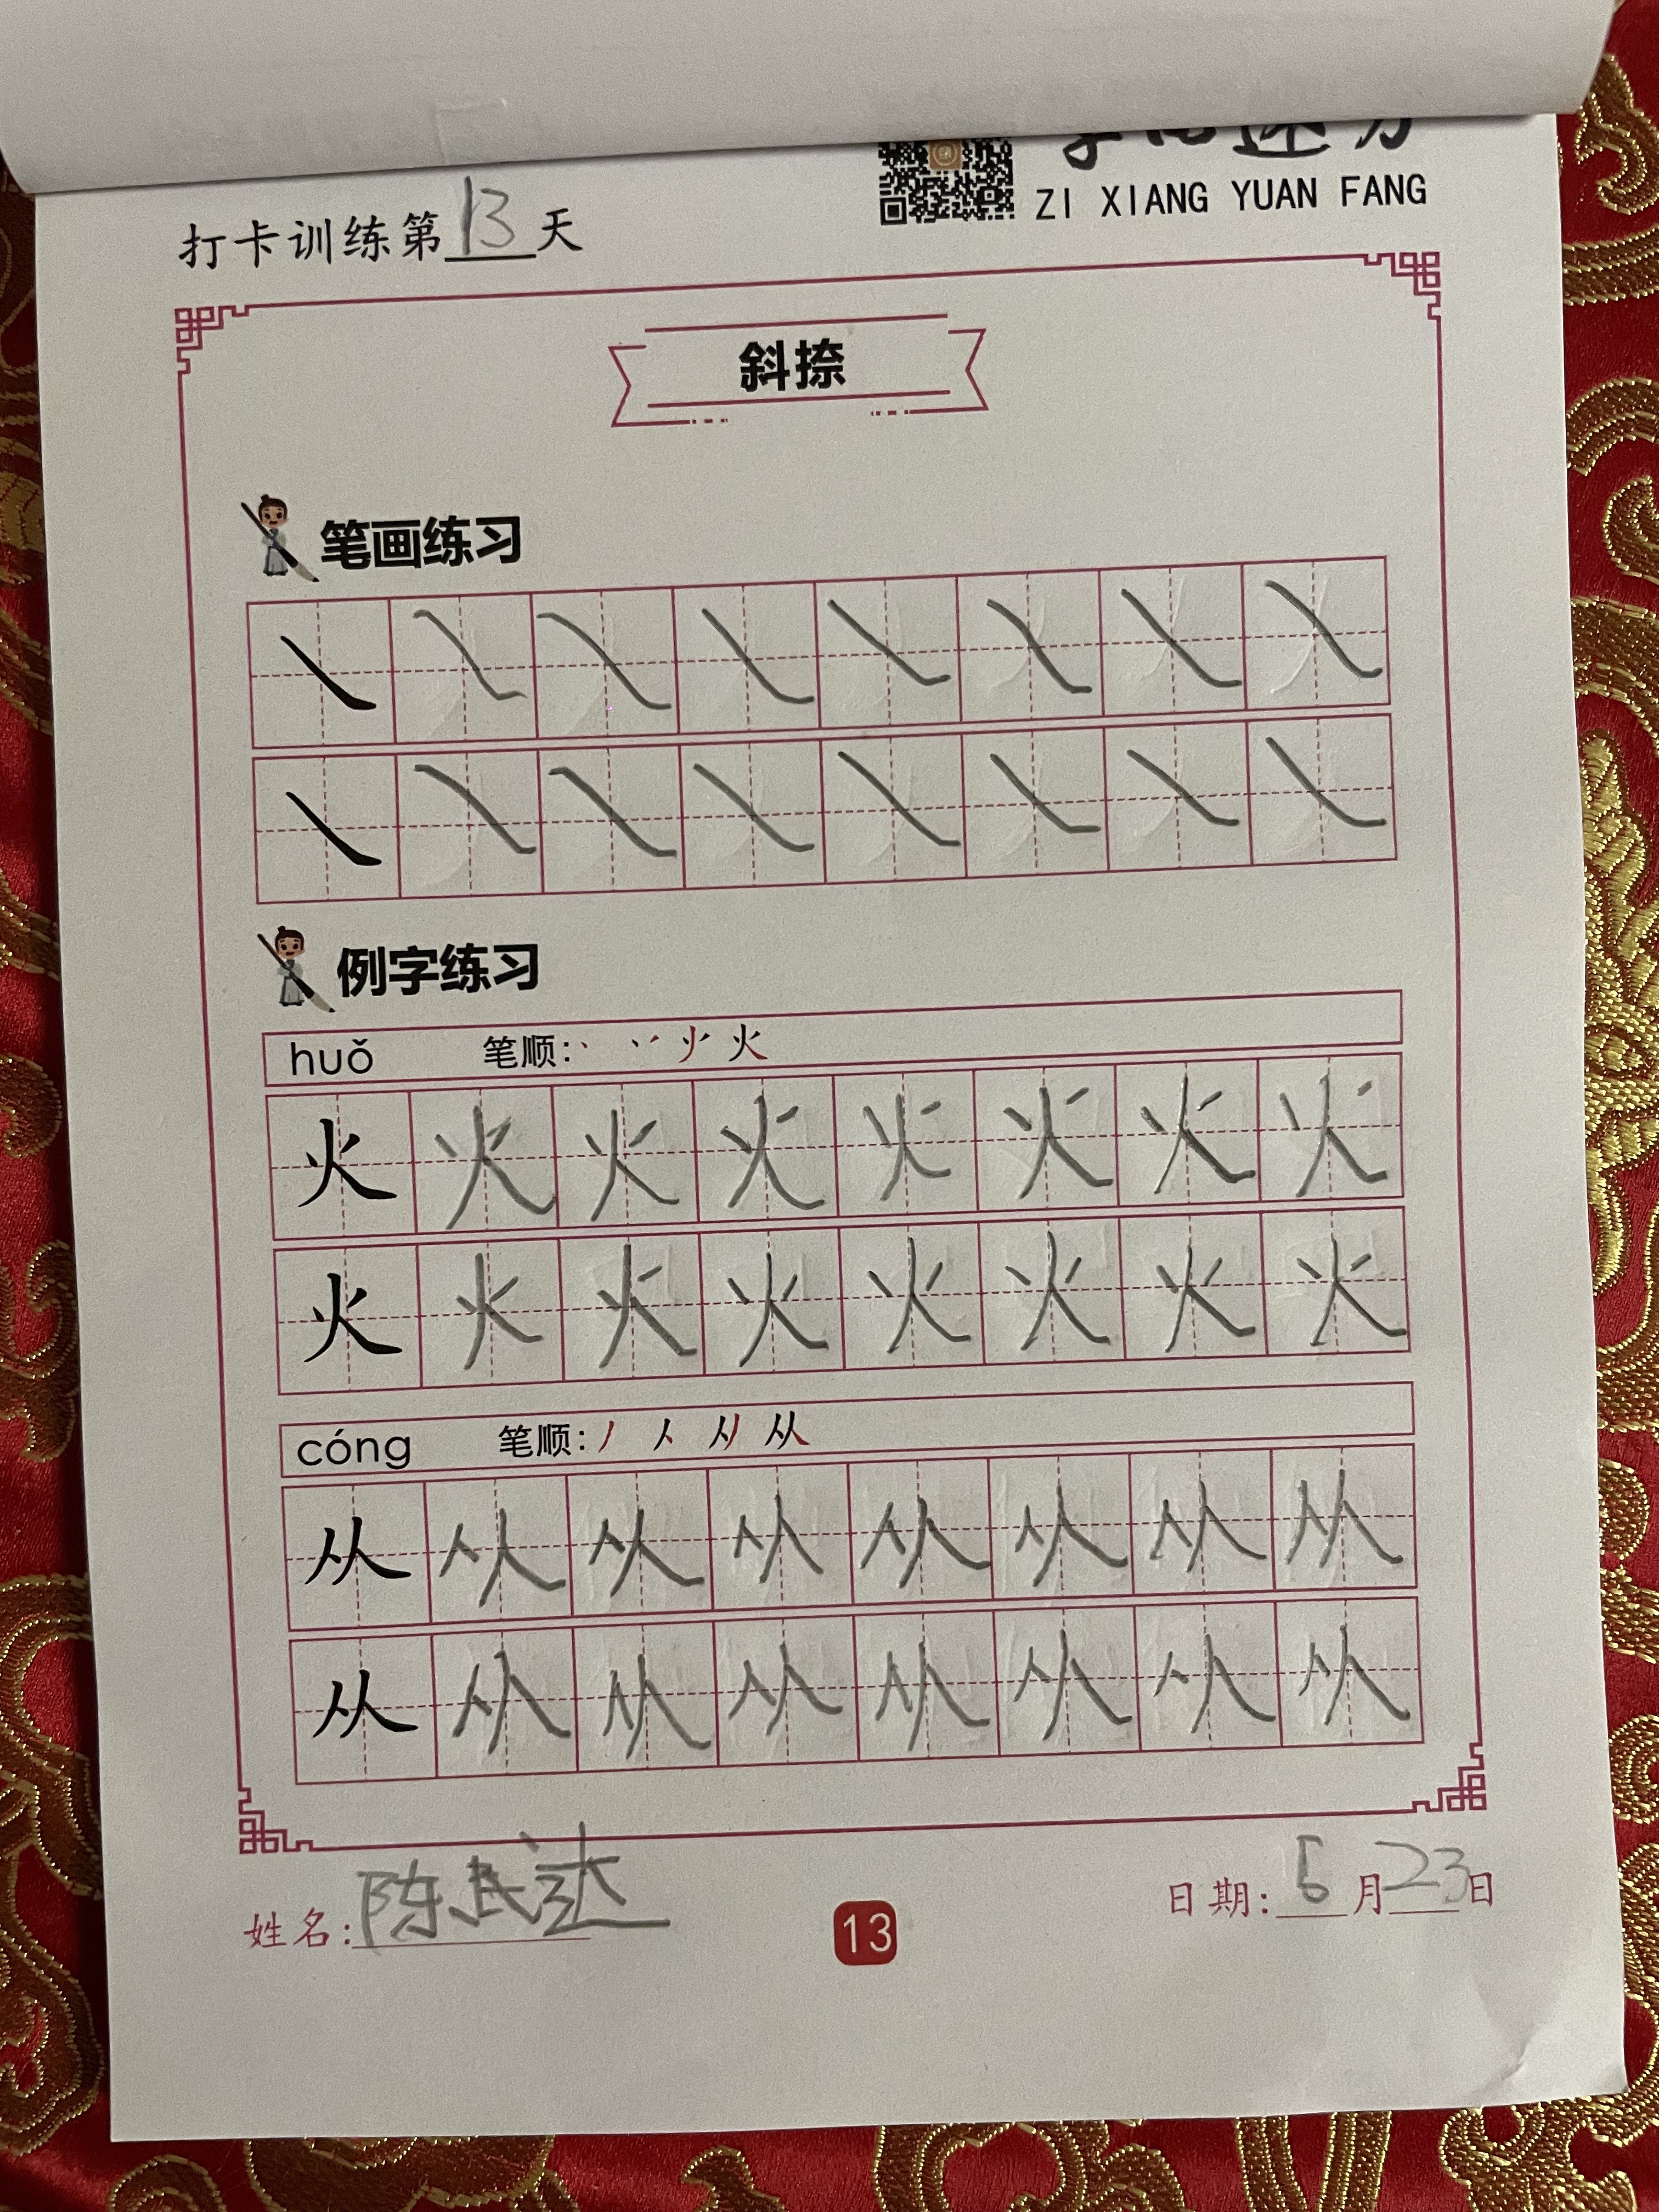 ZI XIANG YUAN FANG
打卡训练第13天
斜捺
笔画练习
例字练习
huǒ 笔顺:丶 丷 火
火火火火火火火火
火火火火火火火火
cóng 笔顺:丿 人 从
从从从从从从从从
从从从从从从从从
姓名:陈武达
13
日期:5月23日